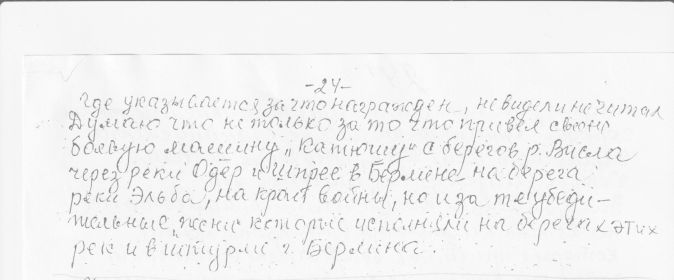 -24-
где указывается за что награжден, не видел и не читал
Думаю что не только за то что привёл свою
боевую машину „Катюшу" с берегов р. Висла
через реки Одер и Шпрее в Берлине на берега
реки Эльба, на краю войны, но и за те убеди-
тельные „песни которые исполняли на берегах этих
рек и в штурме г. Берлина.